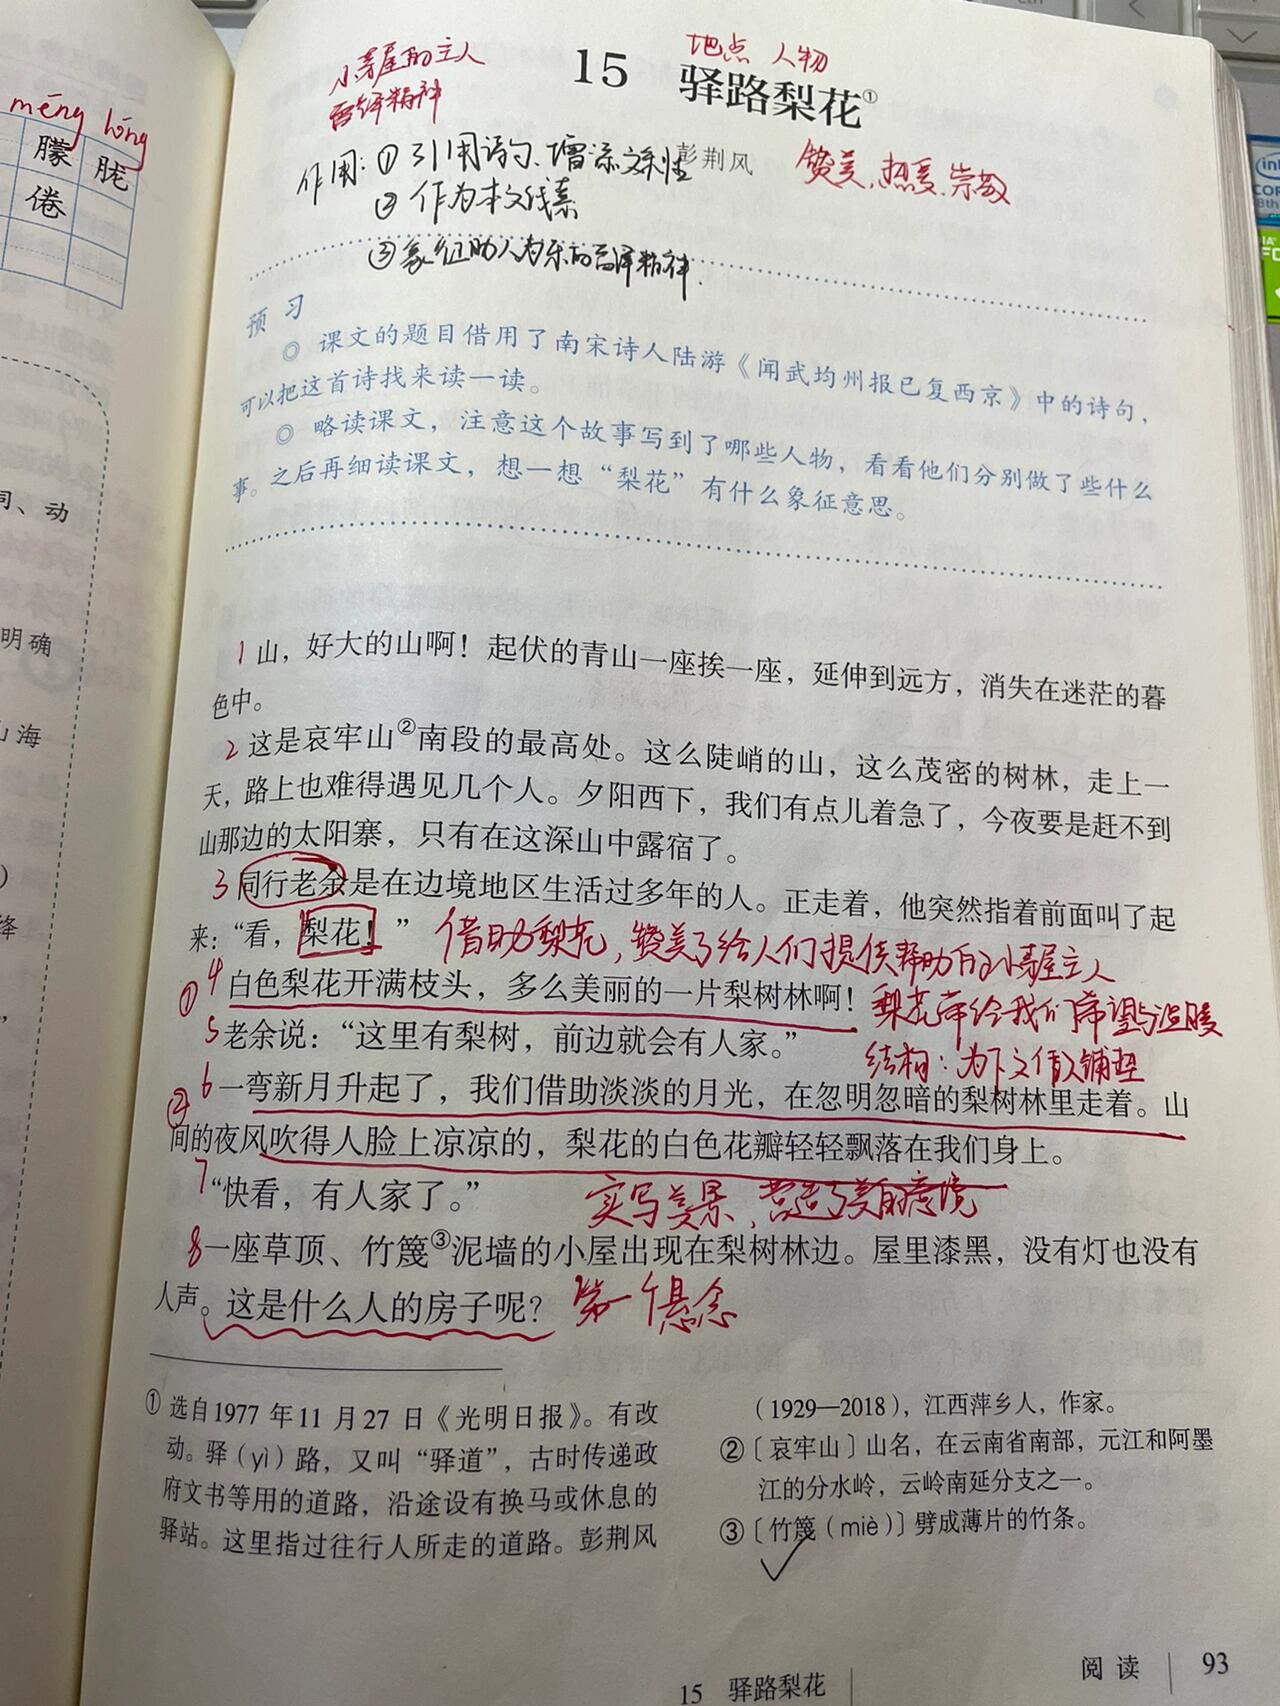 méng lóng
朦 胧
倦
词、动
明确
山海
)
绎
”
地点 人物
小茅屋的主人
雷锋精神
15 驿路梨花①
彭荆风
赞美、热爱、崇敬
作用:①引用诗句、增添文采性
②作为本文线索
③象征助人为乐的雷锋精神.
预 习
◎ 课文的题目借用了南宋诗人陆游《闻武均州报已复西京》中的诗句,
可以把这首诗找来读一读。
◎ 略读课文,注意这个故事写到了哪些人物,看看他们分别做了些什么
事。之后再细读课文,想一想“梨花”有什么象征意思。
1 山,好大的山啊!起伏的青山一座挨一座,延伸到远方,消失在迷茫的暮
色中。
2 这是哀牢山②南段的最高处。这么陡峭的山,这么茂密的树林,走上一
天,路上也难得遇见几个人。夕阳西下,我们有点儿着急了,今夜要是赶不到
山那边的太阳寨,只有在这深山中露宿了。
3 同行老余是在边境地区生活过多年的人。正走着,他突然指着前面叫了起
来:“看,梨花!”
借助梨花,赞美了给人们提供帮助的小茅屋主人
① 4 白色梨花开满枝头,多么美丽的一片梨树林啊!
梨花带给我们希望与温暖
5 老余说:“这里有梨树,前边就会有人家。”
结构:为下文做铺垫
② 6 一弯新月升起了,我们借助淡淡的月光,在忽明忽暗的梨树林里走着。山
间的夜风吹得人脸上凉凉的,梨花的白色花瓣轻轻飘落在我们身上。
7 “快看,有人家了。”
实写美景,营造了美的意境
8 一座草顶、竹篾③泥墙的小屋出现在梨树林边。屋里漆黑,没有灯也没有
人声。这是什么人的房子呢?
第一个悬念
① 选自1977年11月27日《光明日报》。有改
动。驿(yì)路,又叫“驿道”,古时传递政
府文书等用的道路,沿途设有换马或休息的
驿站。这里指过往行人所走的道路。彭荆风
(1929—2018),江西萍乡人,作家。
②〔哀牢山〕山名,在云南省南部,元江和阿墨
江的分水岭,云岭南延分支之一。
③〔竹篾(miè)〕劈成薄片的竹条。
15 驿路梨花
阅读 93